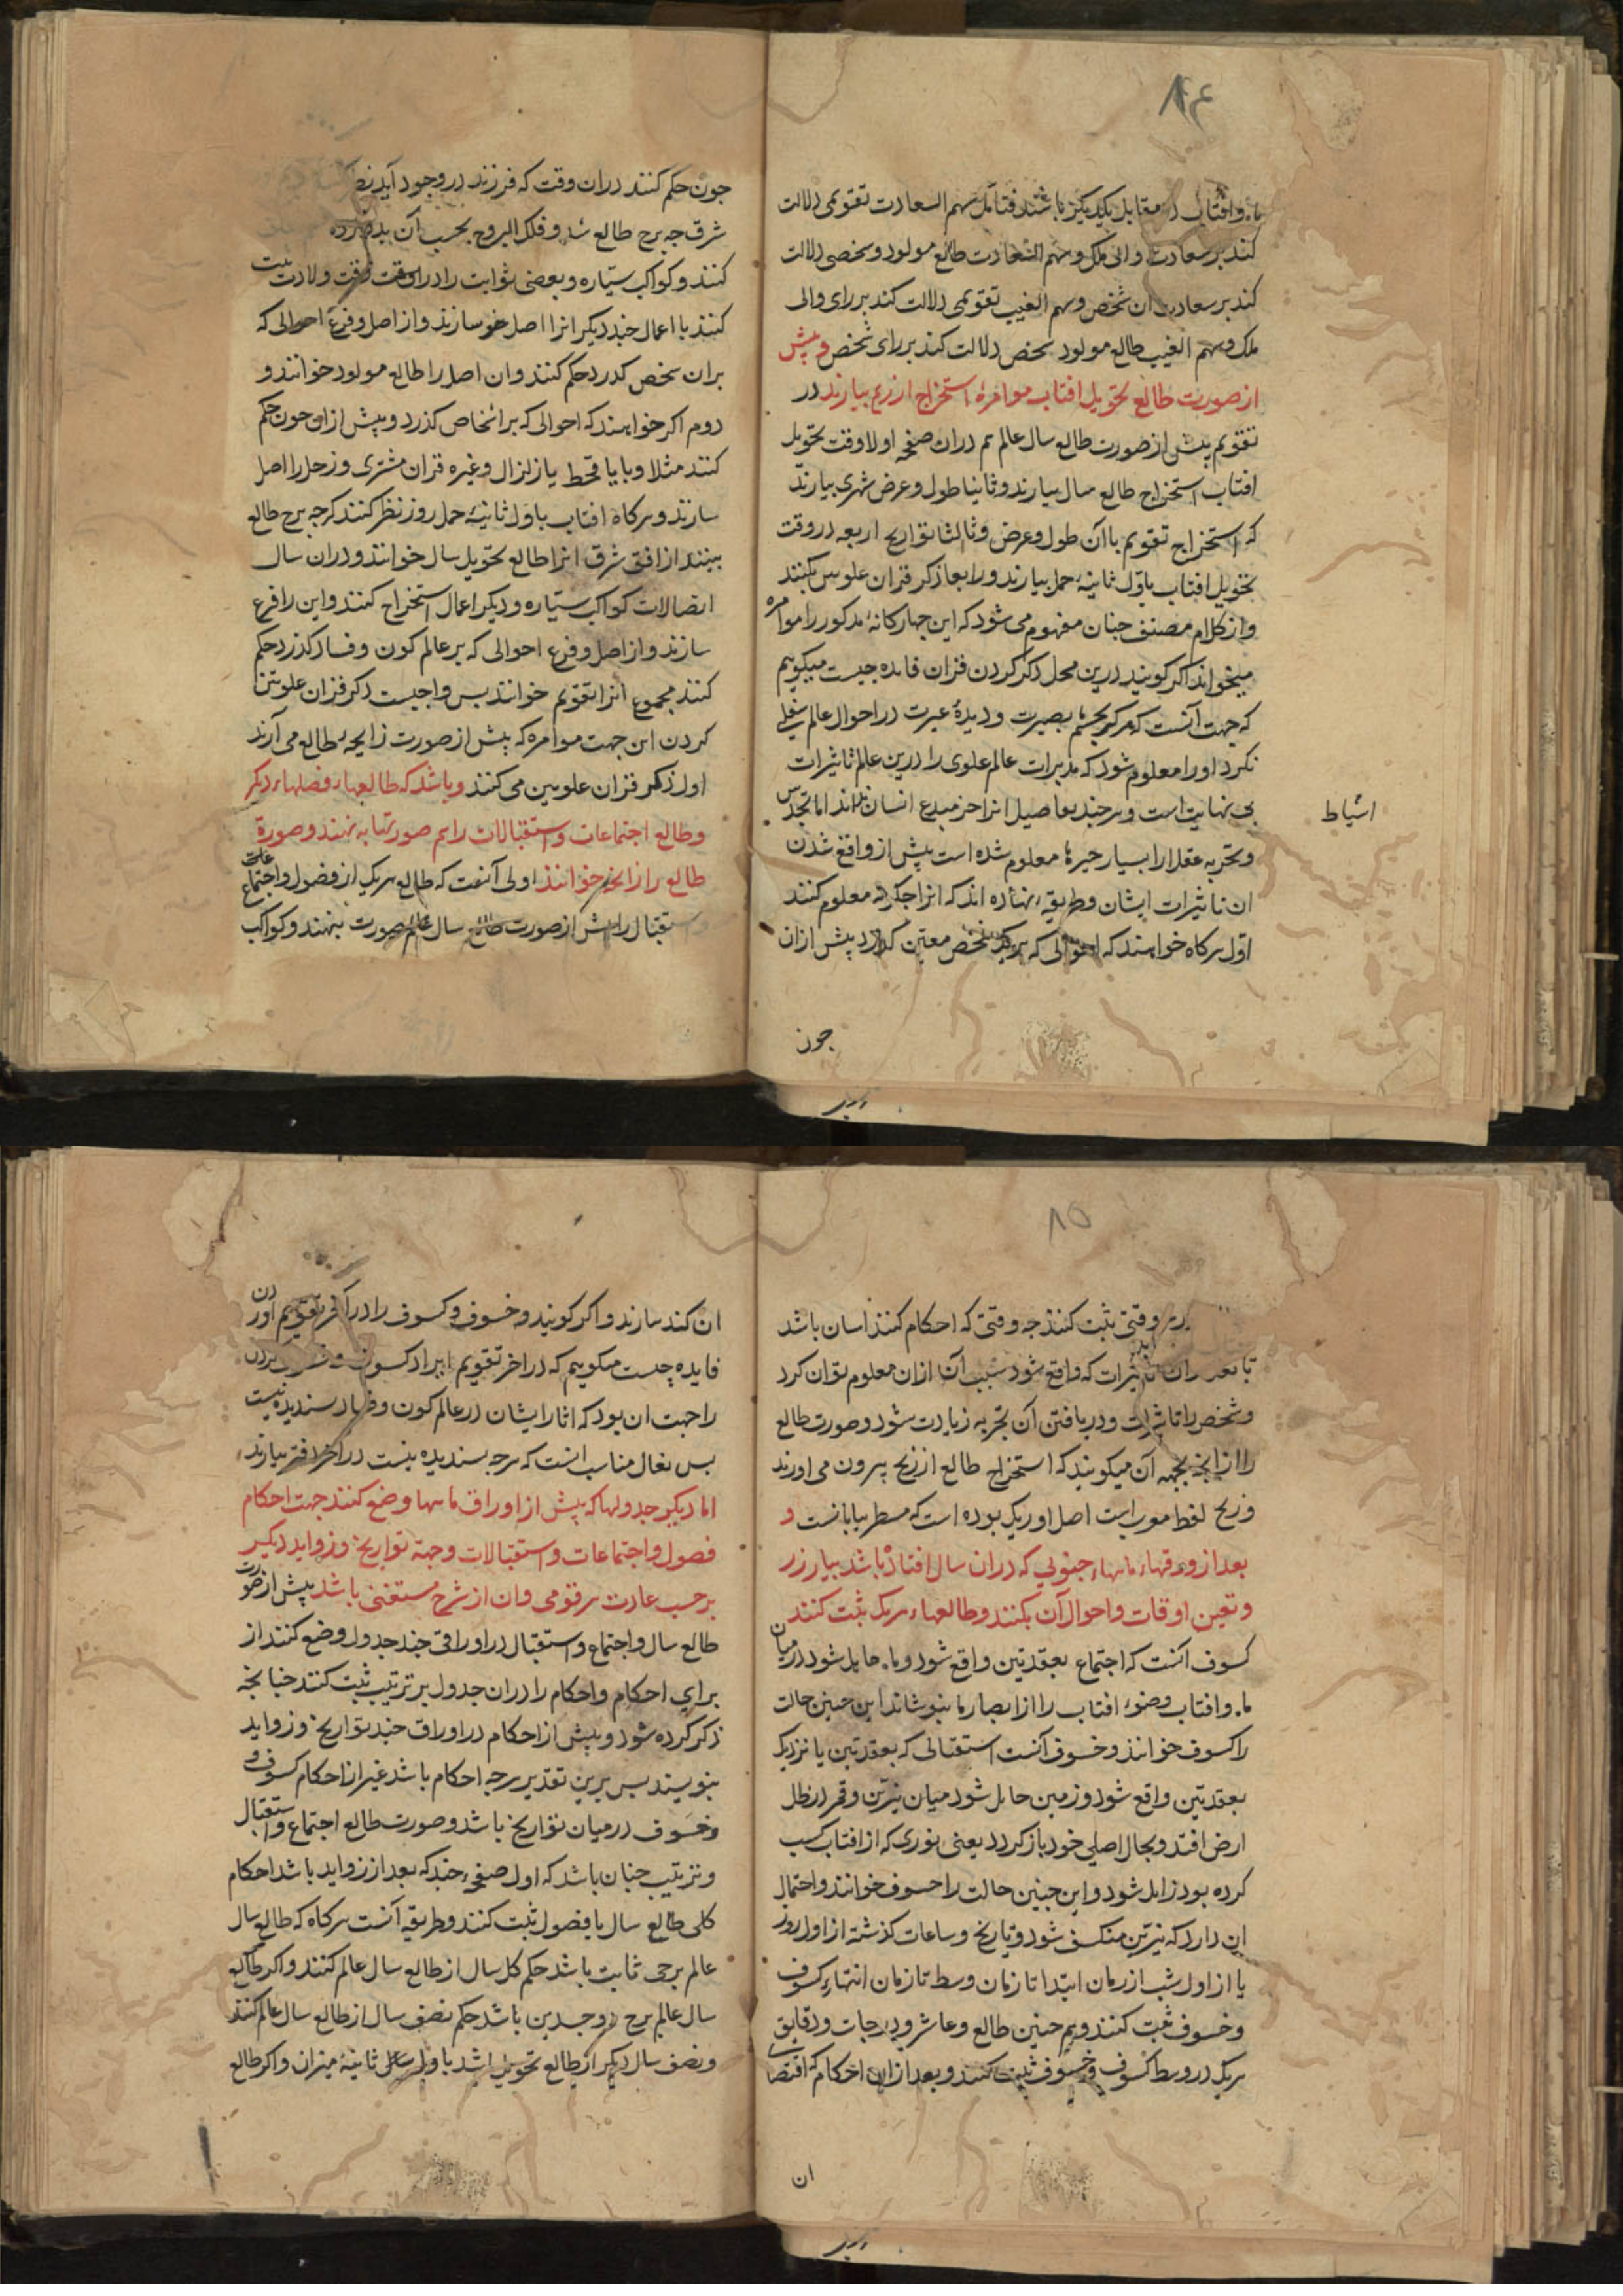 ۸۴
ماه و افتاب در مقابل یکدیکر باشند فتامل سهم السعادت تقویمی دلالت
کند بر سعادت والی ملک و سهم السعادت طالع مولود و سخصی دلالت
کند بر سعادت ان شخص و سهم الغیب تقویمی دلالت کند بر رای والی
ملک و سهم الغیب طالع مولود شخص دلالت کند بر رای شخص و پیش
از صورت طالع تحویل افتاب موامرهٔ استخراج از زیج بیارند در
تقویم پیش از صورت طالع سال عالم هم دران صفحه اولا وقت تحویل
افتاب استخراج طالع سال بیارند و ثانیا طول و عرض شهری بیارند
که استخراج تقویم باآن طول و عرض و ثالثا تواریخ اربعه در وقت
تحویل افتاب باوّل ثانیهٔ حمل بیارند و رابعا ذکر قران علویین بکنند
و از کلام مصنف جنان مفهوم می شود که این جهارکانهٔ مذکور را موامره
میخواند اکر کویند درین محل ذکر کردن قران فایده جیست میکوییم
که جهت آنست که هر کو بجشم بصیرت و دیدهٔ عبرت در احوال عالم سفلی
نکرد او را معلوم شود که مدبرات عالم علوی را درین عالم تاثیرات
بی نهایت است و هر جند تفاصیل انرا جز مبدع انسان نداند اما بحدس
اشیاط
و تجربه عقلا را بسیار جیزها معلوم شده است پیش از واقع شدن
ان تاثیرات ایشان و طریقهٔ نهاده اند که انرا جکونه معلوم کنند
اوّل هرکاه خواهند که احوالی که بر یک شخص معین کذرد پیش ازان
جون
جون حکم کنند دران وقت که فرزند در وجود آید نظر
شرق جه برج طالع شد و فلک البروج بحسب آن
کنند و کواکب سیّاره و بعضی ثوابت را در ان وقت وقت ولادت ثبت
کنند با اعمال جند دیکر انرا اصل خو سازند و از اصل و فرع احوالی که
بران شخص کذرد حکم کنند و ان اصل را طالع مولود خوانند و
دوم اکر خواهند که احوالی که بر اشخاص کذرد و پیش ازان جون حکم
کنند مثلا وبا یا قحط یا زلزال و غیره قران مشتری و زحل را اصل
سازند و هرکاه افتاب باوّل ثانیهٔ حمل روز نظر کنند کر جه برج طالع
ببینند از افق شرق انرا طالع تحویل سال خوانند و دران سال
اتصالات کواکب سیّاره و دیکر اعمال استخراج کنند و این را فرع
سازند و از اصل و فرع احوالی که بر عالم کون و فساد کذرد حکم
کنند مجموع انرا تقویم خوانند بس واجبست ذکر قران علویین
کردن این جهت موامره که پیش از صورت زایجهٔ طالع می آرند
اول ذکر قران علویین می کنند و باشد که طالعهاء فصلهاء دیکر
و طالع اجتماعات و استقبالات را هم صورتها به نهند و صورة
طالع را زایجه خوانند اولی آنست که طالع هریک از فصول و اجتماعات
و استقبال را پیش از صورت طالع سال عالم صورت بنهند و کواکب
۸۵
وقتی ثبت کنند جه وقتی که احکام کنند اسان باشد
تا بعد ازان تاثیرات که واقع شود سبب آن ازان معلوم توان کرد
و شخص را تاثیرات و دریافتن آن تجربه زیادت شود و صورت طالع
را زایجه بجهه آن میکویند که استخراج طالع از زیج بیرون می اورند
و زیج لفظ معرب است اصل او زیک بوده است که مسطر بنایانست و
بعد از ورقهاء ماهها جنوبی که دران سال افتاده باشد بیارند
و تعیین اوقات و احوال آن بکنند و طالعهاء هریک ثبت کنند
کسوف انست که اجتماع بعقدتین واقع شود و ماه حایل شود در میان
ماه و افتاب و ضوء افتاب را از ابصار ما بپوشاند این جنین حالت
را کسوف خوانند و خسوف آنست استقبالی که بعقدتین یا نزدیک
بعقدتین واقع شود و زمین حایل شود میان نیرّین و قمر در ظل
ارض افتد و بحال اصلی خود باز کردد یعنی نوری که از افتاب کسب
کرده بود زایل شود و این جنین حالت را خسوف خوانند و احتمال
این دارد که نیرین منکسف شود و تاریخ و ساعات کذشته از اول روز
یا از اول شب از زمان ابتدا تا زمان وسط تا زمان انتهاء کسوف
و خسوف ثبت کنند و هم جنین طالع و عاشر و درجات و دقایق
هریک در وسط کسوف و خسوف ثبت کنند و بعد ازان احکام که اقتضای
ان
ان کند سازند و اکر کویند و خسوف و کسوف را در اخر تقویم اوردن
فایده چست میکوییم که در اخر تقویم ایراد کسوف و خسوف کردن
را جهت ان بود که اثار ایشان در عالم کون و فساد سندیده نیست
بس بفال مناسب انست که هرجه بسندیده نیست در اخر دفتر بیارند
اما دیکر جدولها که پیش از اوراق ماهها وضع کنند جهت احکام
فصول و اجتماعات و استقبالات و جهة تواریخ و زواید دیکر
برحسب عادت هر قومی و ان از شرح مستغنی باشد پیش از صورت
طالع سال و اجتماع و استقبال در اوراقی جند جدول وضع کنند از
برای احکام و احکام را دران جدول بر ترتیب ثبت کنند جنانجه
ذکر کرده شود و پیش از احکام در اوراق جند تواریخ و زواید
بنویسند بس برین تقدیر هرجه احکام باشد غیر از احکام کسوف و
خسوف در میان تواریخ باشد و صورت طالع اجتماع و استقبال
و ترتیب جنان باشد که اول صفحهٔ جند که بعد از زواید باشد احکام
کلی طالع سال با فصول ثبت کنند و طریقه آنست هرکاه که طالع سال
عالم برجی ثابت باشد حکم کل سال از طالع سال عالم کنند و اکر طالع
سال عالم برج ذوجسدین باشد حکم نصف سال از طالع سال عالم کنند
و نصف سال دیکر از طالع تحویل باشد باول ثانیهٔ میزان و اکر طالع